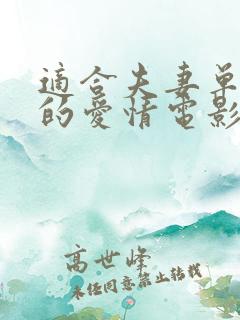 適合夫妻單
的愛情電影
高世峰
未经同意禁止转载